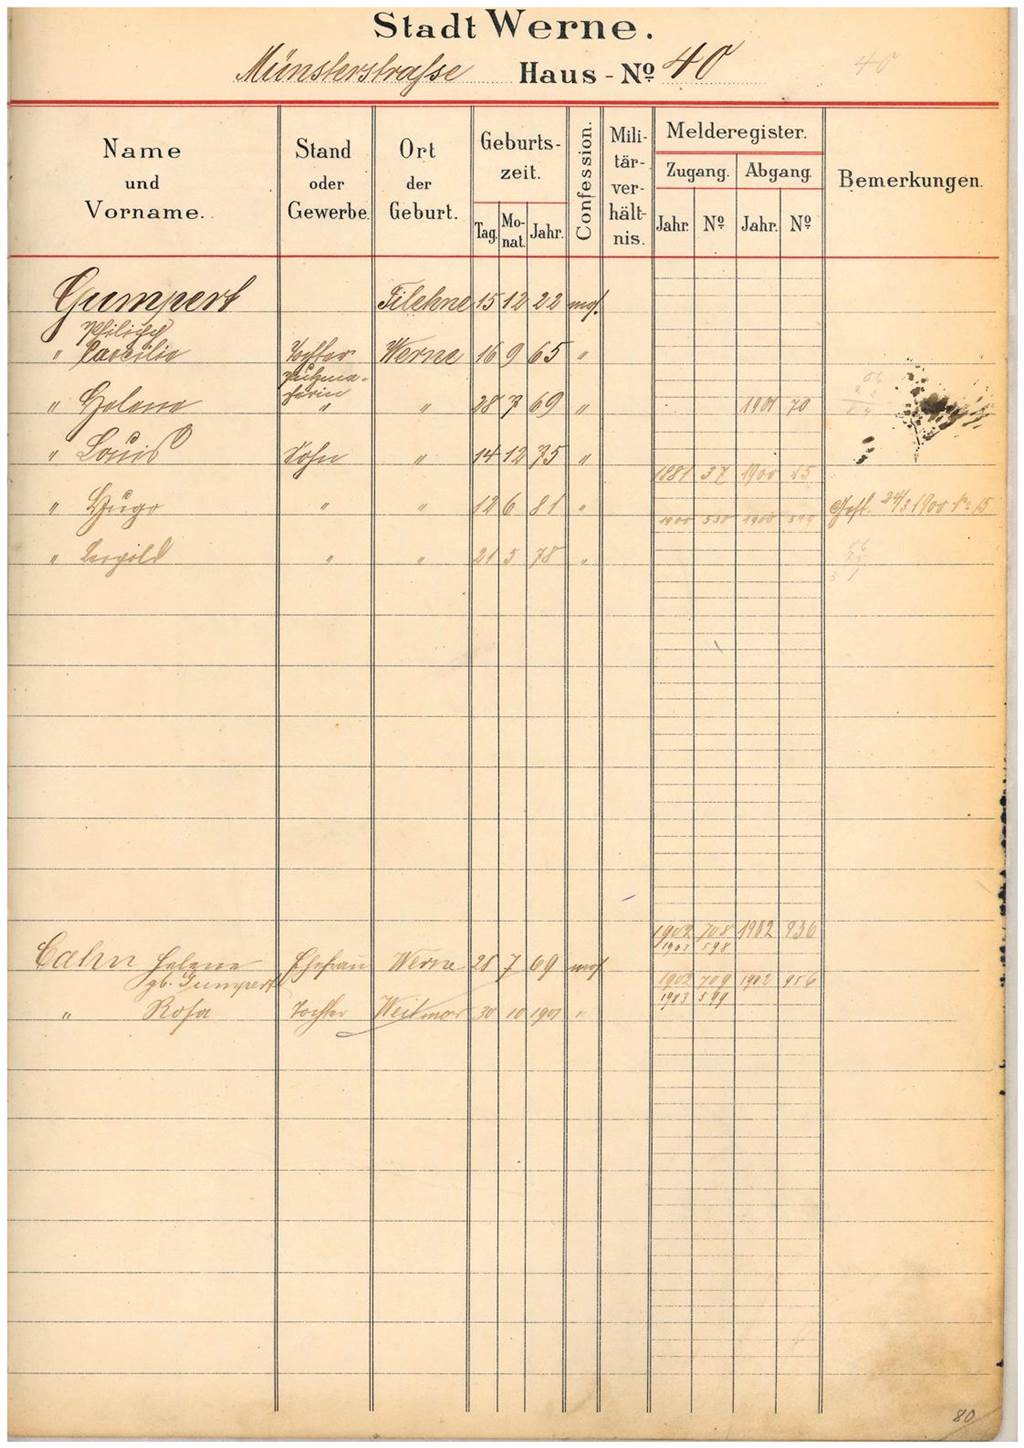 Stadt Werne.
Münsterstraße Haus-No 40
40
Name und Vorname.
Stand oder Gewerbe.
Ort der Geburt.
Geburts-zeit.
Tag. Mo-nat. Jahr.
Confession.
Mili-tär-ver-hält-nis.
Melderegister.
Zugang. Abgang.
Jahr. No Jahr. No
Bemerkungen.
Gumpert Filehne 15 12 22 mos.
Philipp
" Caecilie Tochter Werne 16 9 65 "
" Helene " " 28 7 69 " 1901 70
" Louis Sohn " 14 12 75 "
1881 37 1900 15
" Hugo " " 12 6 81 " Gest. 24/3 1900 No 15
" Leopold " " 21 5 78 "
1902 708 1902 936
1903 598
Cahn Helene Ehefrau Werne 28 7 69 mos
gb. Gumpert
1902 709 1902 956
1903 599
" Rosa Tochter Weitmar 30 10 1901 "
80